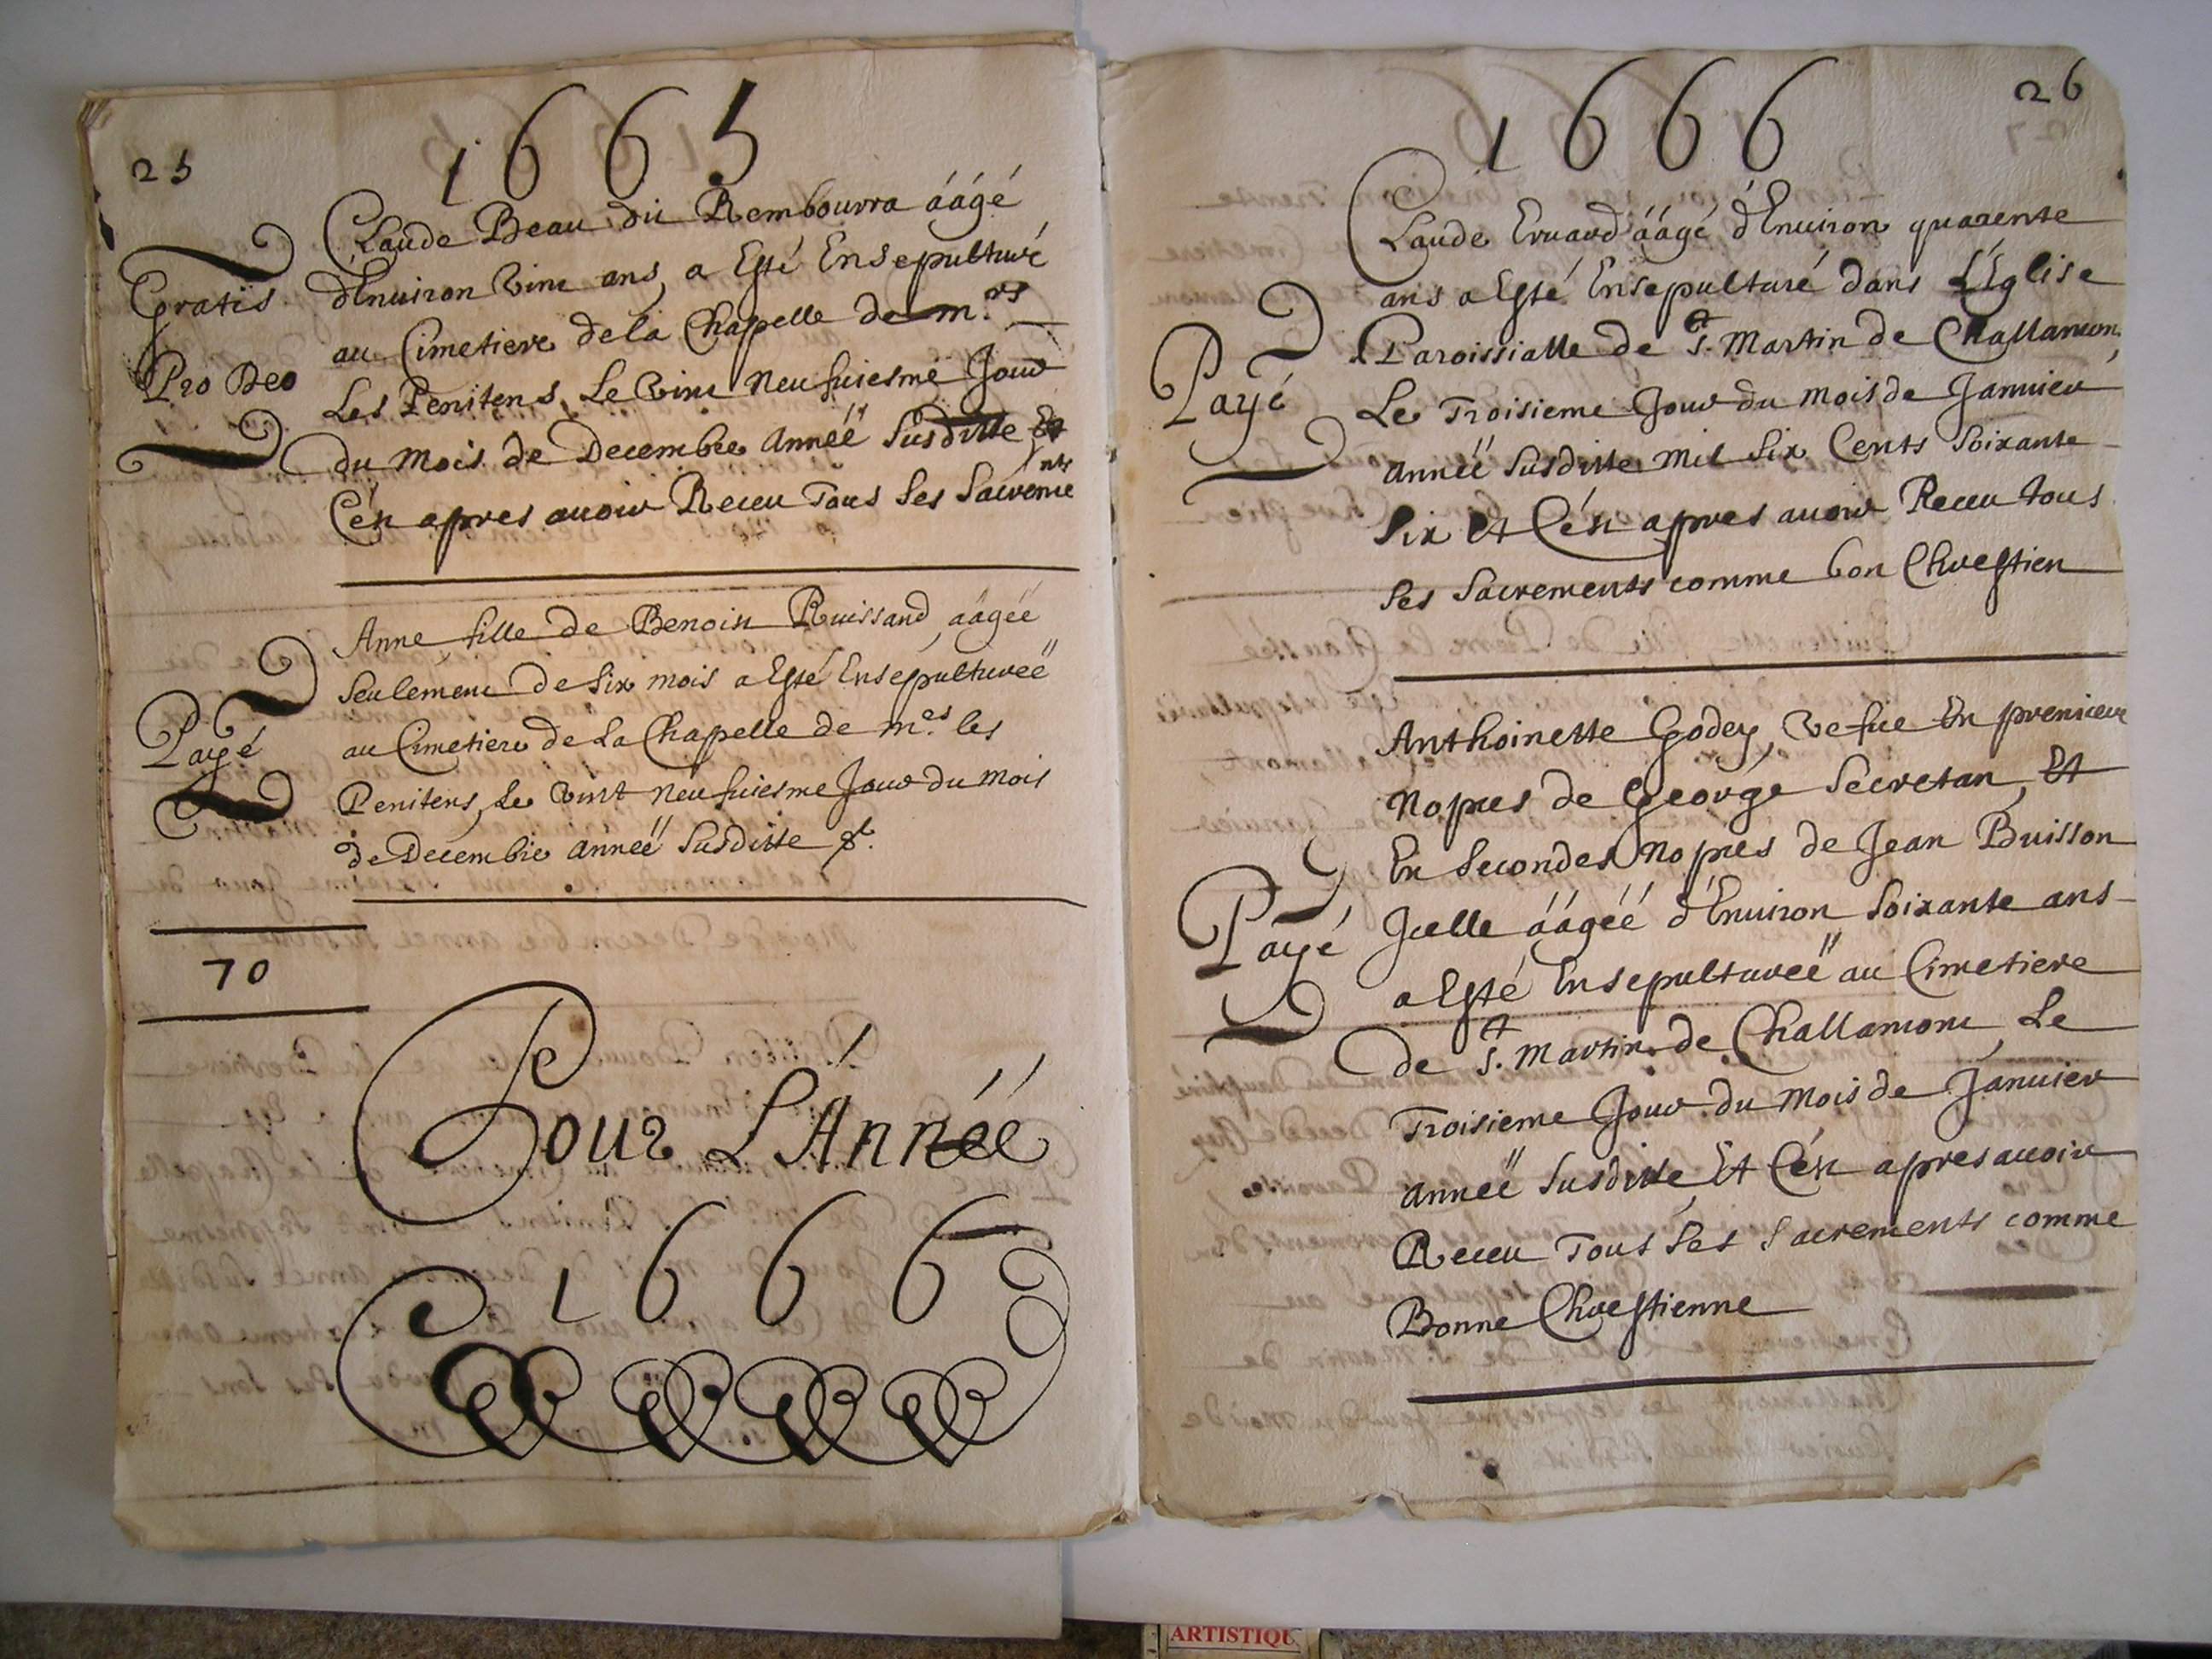 25
1665
Gratis
Pro Deo
Claude Beau dit Rembourra áágé
d'Enuiron vint ans, a Esté Ensepulturé
au Cimetiere de la Chapelle de mrs
Les Penitens Le vint neufuiesme Jour
du Mois de Decembre Année Susditte Et
C'ét apres auoir Receu Tous Ses Sacrements
Payé
Anne fille de Benoist Ruissand, áagéé
Seulement de Six mois a Esté Ensepulturéé
au Cimetiere de La Chapelle de mes. les
Penitens, Le vint neufuiesme Jour du Mois
de Decembre année Susditte &.
70
Pour L'Année
1666
26
1666
Payé
Claude Eruard áágé d'Enuiron quarente
ans a Esté Ensepulturé dans L'Eglise
Paroissialle de St. Martin de Challamont,
Le Troisieme Jour du Mois de Januier
année Susditte Mil Six Cents Soixante
Six Et C'ét apres auoir Receu tous
Ses Sacrements comme bon Chrestien
Payé
Anthoinette Godey, vefue En premieres
Nopces de George Secretan, Et
En Secondes Nopces de Jean Buisson
Icelle áágéé d'Enuiron Soixante ans
a Esté Ensepulturéé au Cimetiere
de St. Martin de Challamont, Le
Troisieme Jour du Mois de Januier
année Susditte Et C'ét apres auoir
Receu Tous Ses Sacrements comme
Bonne Chrestienne
ARTISTIQU